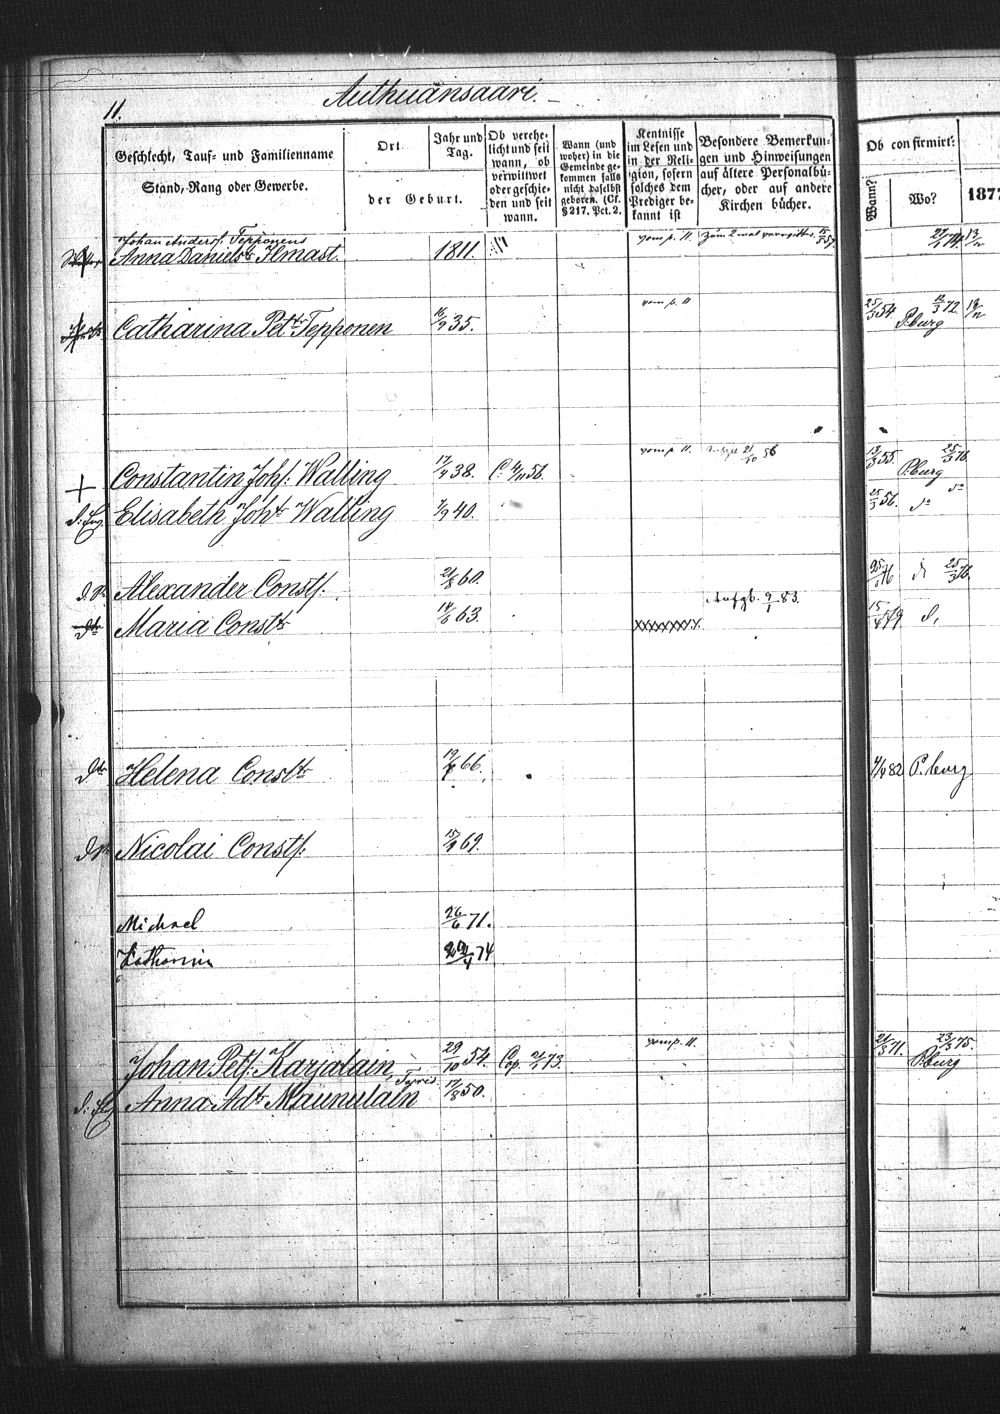 11.
Authuänsaari.
Geschlecht, Tauf- und Familienname
Stand, Rang oder Gewerbe.
Ort
der Geburt.
Jahr und
Tag.
Ob verehe-
licht und seit
wann, ob
verwittwet
oder geschie-
den und seit
wann.
Wann (und
woher) in die
Gemeinde ge-
kommen falls
nicht daselbst
geboren. (Cf.
§ 217. Pct. 2.
Kentnisse
im Lesen und
in der Reli-
gion, sofern
solches dem
Prediger be-
kannt ist
Besondere Bemerkun-
gen und Hinweisungen
auf ältere Personalbü-
cher, oder auf andere
Kirchen bücher.
Ob confirmirt:
Wann?
Wo?
1877
Johan Anders: Tepponens
Anna Daniels tr Ilmast. 1811. vom p. 11.
vom p. 11
Catharina Pet tr Tepponen 16/9 35. 25/3 54. P.burg 12/3 72
vom p. 11.
Constantin Johs: Walling 17/4 38. C. 4/11 56. 13/3 55. P.burg 25/3 76.
Elisabeth Joh tr Walling 7/9 40. 25/3 56. do
Alexander Consts: 21/8 60. 25/3 76.
Aufgb. 9/1 83.
Maria Const tr 14/6 63. xxxxxxxx 15/4 79 d.
Helena Const tr 19/4 66. 4/4 82 P.burg
Nicolai Consts: 15/9 69.
Michael 26/6 71.
Catharina 22/4 74
vom p. 11.
Johan Pets: Karjalain 29/10 54. Cop. 21/1 73. 21/3 71. P.burg 23/3 75.
Anna Ad tr Maunulain 17/8 50.